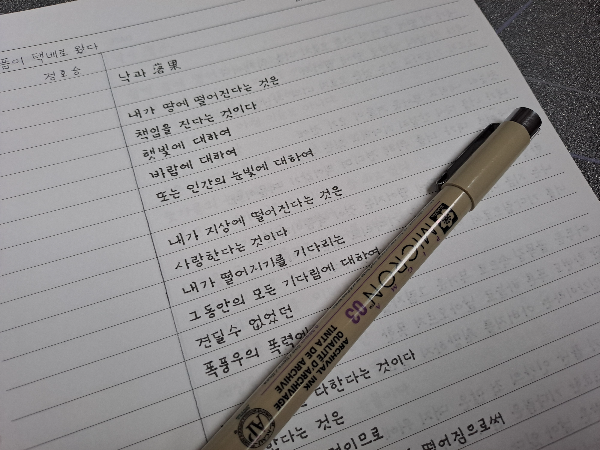 슬픔이 택배로 왔다
정호승
낙과 落果
내가 땅에 떨어진다는 것은
책임을 진다는 것이다
햇빛에 대하여
바람에 대하여
또는 인간의 눈빛에 대하여
내가 지상에 떨어진다는 것은
사랑한다는 것이다
내가 떨어지기를 기다리는
그동안의 모든 기다림에 대하여
견딜수 없었던
폭풍우의 폭력에
다한다는 것이다
다는 것은
것이므로
떨어짐으로써
MICRON 03
ARCHIVAL INK
QUALITÉ D'ARCHIVAGE
TINTA DE ARCHIVE
AP